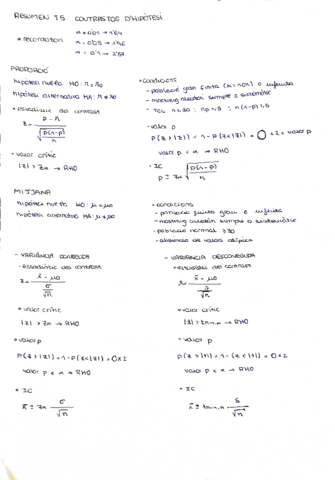 RESUMEN T5 CONTRASTOS D'HIPÒTESI
* recordatori
α = 0'01 → 1'64
α = 0'05 → 1'96
α = 0'1 → 2'57
PROPORCIÓ
hipòtesi nul·la H0: π = π0
hipòtesi alternativa HA: π ≠ π0
* estadístic de contrast
z = p - π / √(p(1-p)/n)
* valor crític
|z| > zα → RH0
* condicions
- mostreig aleatori simple o sistemàtic
- TCL n ≥ 30 ; np ≥ 5 ; n(1-p) ≥ 5
* valor p
P(z > |z|) = 1 - P(z < |z|) = O x 2 = valor p
valor p < α → RH0
* IC
p ± zα √(p(1-p)/n)
MITJANA
hipòtesi nul·la H0: μ = μ0
hipòtesi alternativa HA: μ ≠ μ0
* condicions
- mostreig aleatori simple o sistemàtic
- població normal ≥ 30
- absència de valors atípics
- VARIÀNCIA CONEGUDA
* estadístic de contrast
z = x̄ - μ0 / σ/√n
* valor crític
|z| > zα → RH0
* valor p
P(z > |z|) = 1 - P(z < |z|) = O x 2
valor p < α → RH0
* IC
x̄ ± zα σ/√n
- VARIÀNCIA DESCONEGUDA
* estadístic de contrast
t = x̄ - μ0 / s/√n
* valor crític
|t| > tn-1,α → RH0
* valor p
P(t > |t|) = 1 - (t < |t|) = O x 2
valor p < α → RH0
* IC
x̄ ± tn-1,α s/√n